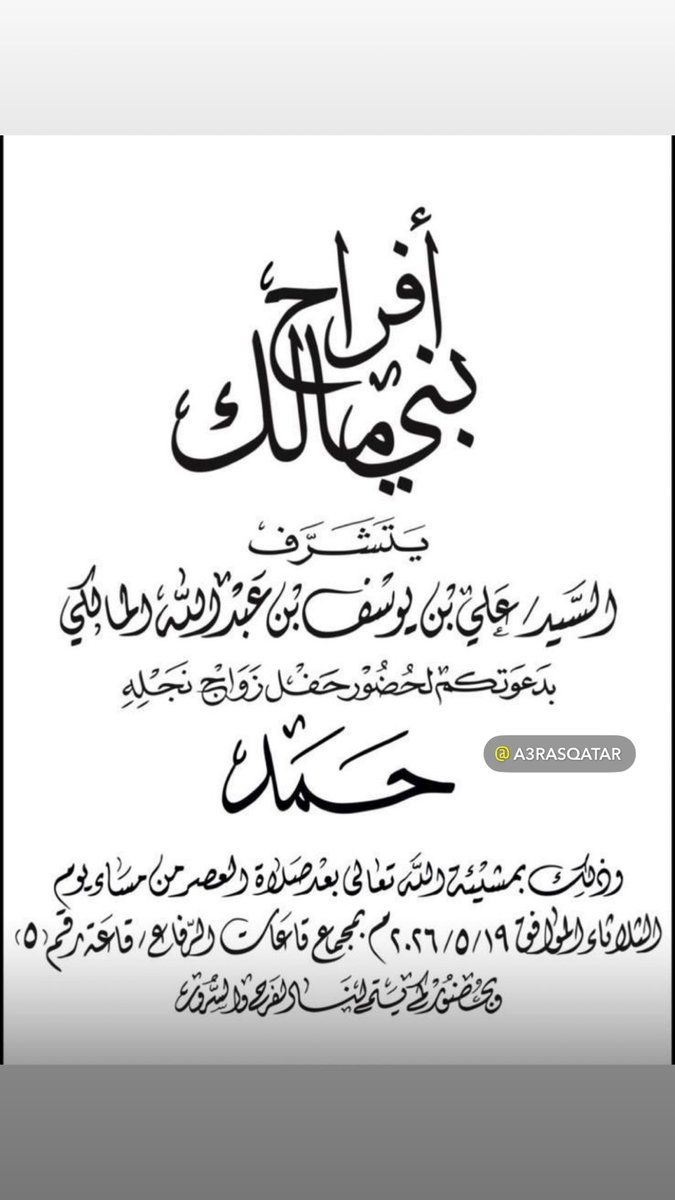 أفراح
بني مالك
يَتَشَرَّف
السَّيد/ عَلي بْن يوسُف بْن عَبْدالله المالكي
بدَعَوتكم لحُضُور حَفْل زَوَاج نَجْلِهِ
حَمَد
@A3RASQATAR
وذلك بمشيئة الله تعالى بعد صلاة العصر من مساء يوم
الثلاثاء الموافق ٢٠٢٦/٥/١٩م بمجمع قاعات الرفاع/ قاعة رقم (٥)
وبحضوركم يتم لنا الفرح والسرور